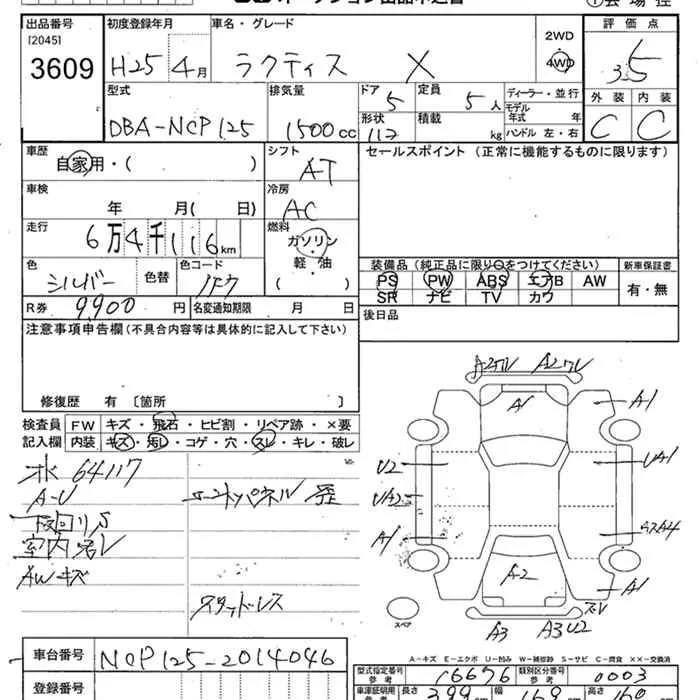 オークション出品申込書
出品番号
[2045]
3609
初度登録年月
H25 4月
車名・グレード
ラクティス X
2WD
・
4WD
評価点
3.5
外装 内装
C C
型式
DBA-NCP125
排気量
1500cc
ドア
5
形状
定員
5人
積載
kg
ディーラー・並行
モデル年式 年
ハンドル 左・右
車歴
自家用・( )
シフト
AT
セールスポイント (正常に機能するものに限ります)
車検
年 月( 日)
冷房
AC
走行
6万4千116km
燃料
ガソリン
・
軽・油
( )
色
シルバー
色替
色コード
1F7
装備品 (純正品に限り○をつけてください)
PS PW ABS エアB AW
SR ナビ TV カワ
新車保証書
有・無
R券
9900円
名変通知期限 月 日
後日品
注意事項申告欄 (不具合内容等は具体的に記入して下さい)
修復歴 有 〔箇所
検査員記入欄
FW キズ・飛石・ヒビ割・リペア跡・×要
内装 キズ・汚レ・コゲ・穴・スレ・キレ・破レ
64117
A-U
下回りS
室内汚レ
AWキズ
スタッドレス
A1
A-1
U2
UA1
UA2
A1
A-2
A1
A3
A3U2
スペア
A-キズ E-エクボ U-凹み W-補修跡 S-サビ C-腐食 ××-交換済
車台番号
NCP125-2014046
登録番号
型式指定番号
参考
16676
類別区分番号
参考
0003
車庫証明用
参考
長さ
399cm
幅
169cm
高さ
160cm